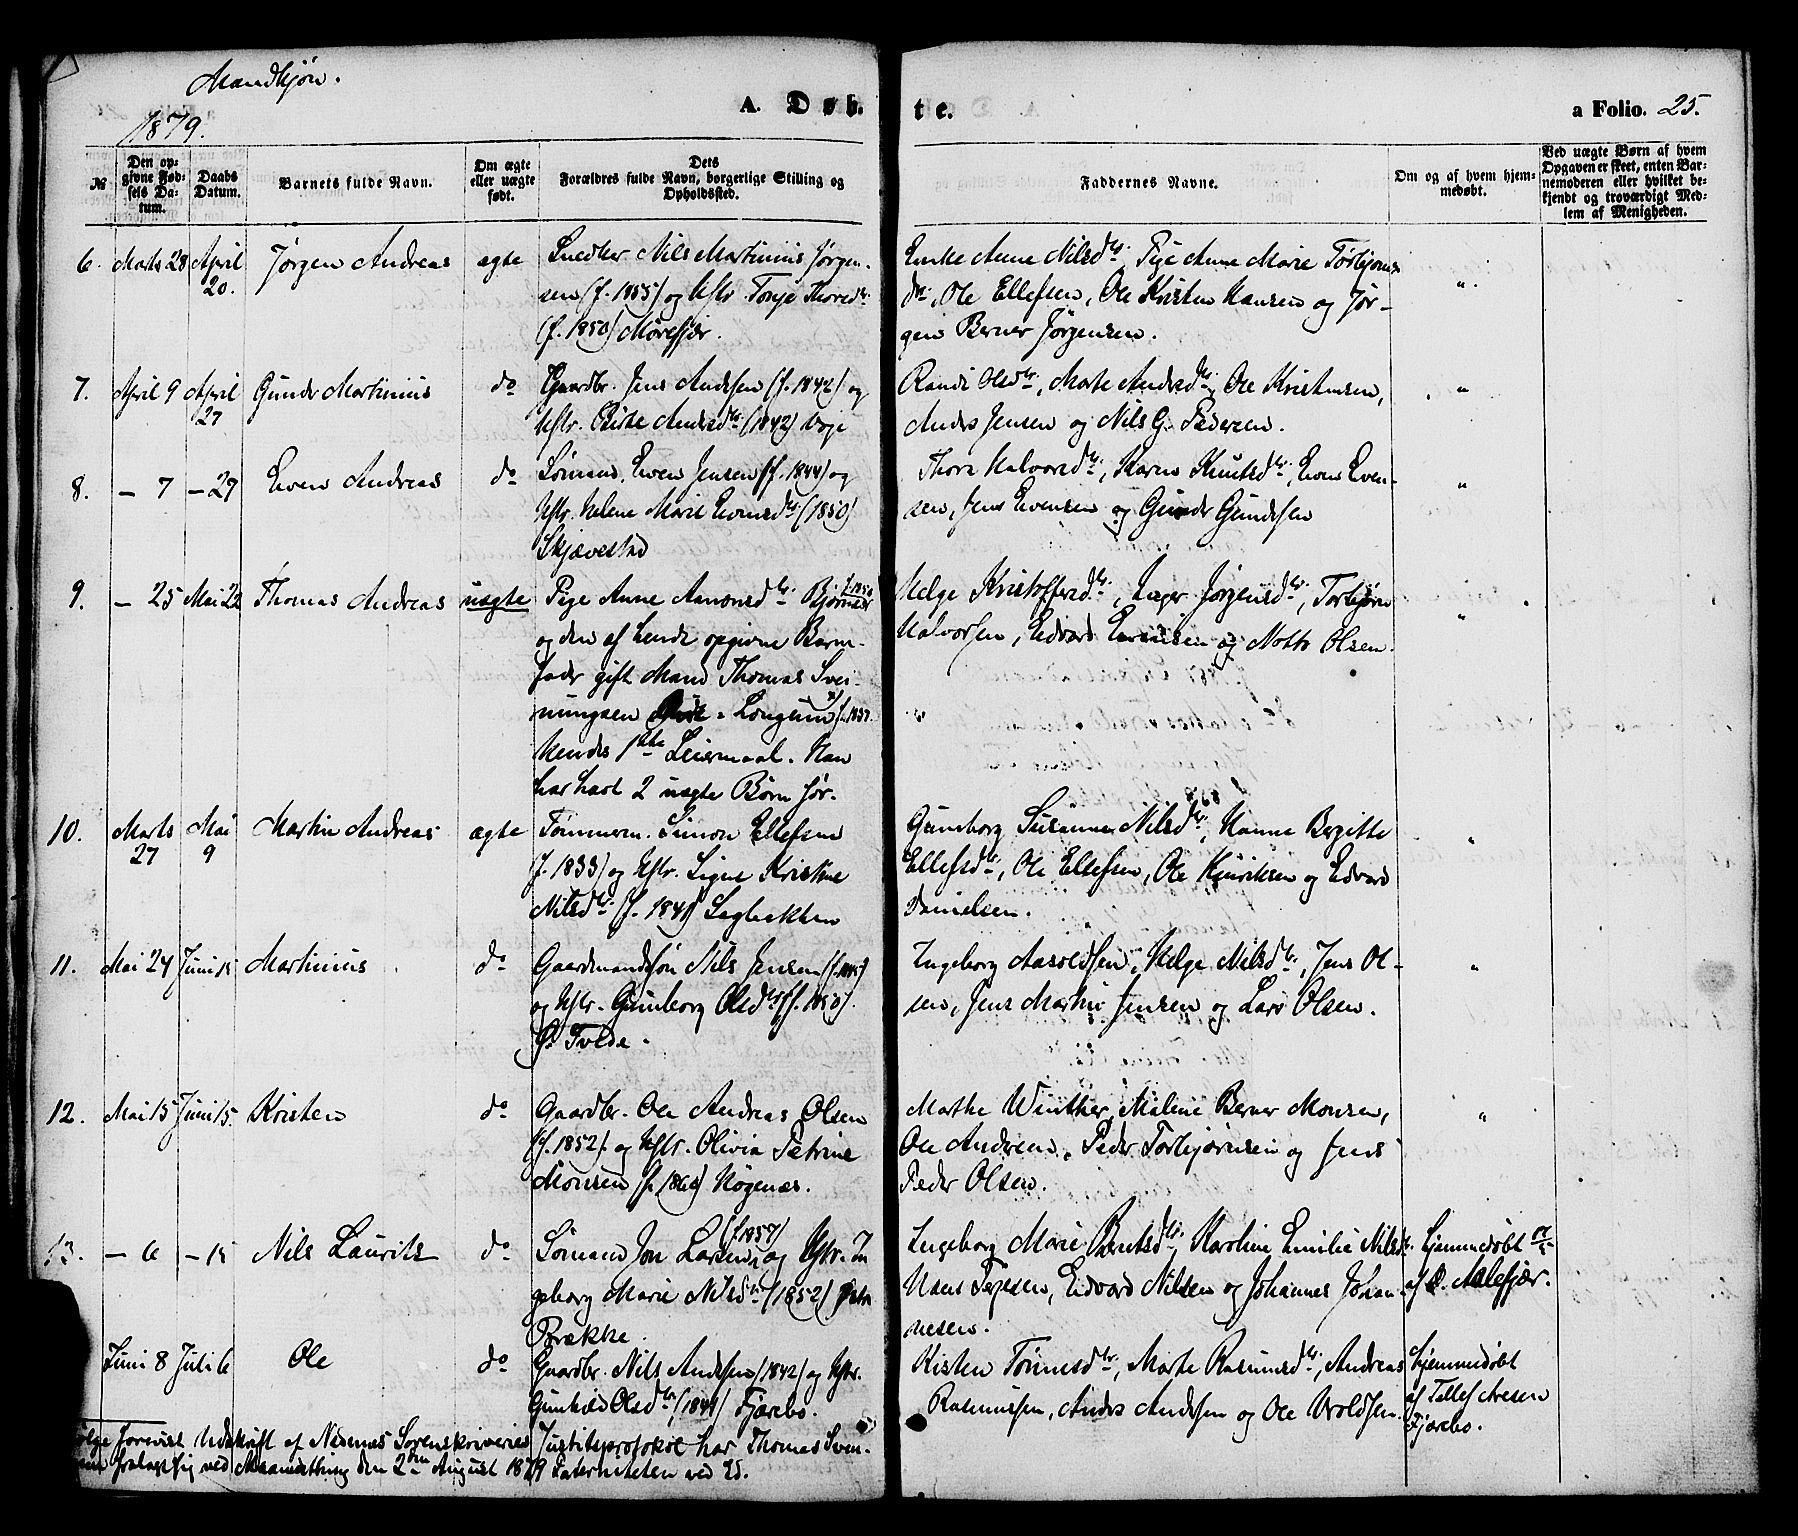 Mandkjøn.
1879.
A. Døb-
te.
a Folio. 25.
№
Den op-
givne Fød-
sels Da-
tum.
Daabs
Datum.
Barnets fulde Navn.
Om ægte
eller uægte
født.
Dets
Forældres fulde Navn, borgerlige Stilling og
Opholdssted.
Faddernes Navne.
Om og af hvem hjem-
medøbt.
Ved uægte Børn af hvem
Opgaven er skeet, enten Bar-
nemoderen eller hvilket be-
kjendt og troværdigt Med-
lem af Menigheden.
6. Marts 28 April 20. Jørgen Andreas ægte
Snedker Nils Martinius Jørgen-
sen (f. 1855) og Hstr. Tonje Thoresdtr.
(f. 1850) Mørefjær.
Enke Anne Nilsdtr., Pige Anne Marie Torbjørns-
dtr., Ole Ellefsen, Ole Kristen Hansen og Jør-
gen Berner Jørgensen.
"
7. April 9 April 27 Gunder Martinius do
Gaardbr. Jens Andersen (f. 1842) og
Hstr. Anders dtr. (1842) Voje
Randi Olsdtr., Marte Andersdtr., Ole Kristensen,
Anders Jensen og Nils G. Pedersen.
"
8. – 7 – 27 Even Andreas do
Sømand Even Jensen (f. 1844) og
Hstr. Helene Marie Evensdtr. (1850)
Skjævestad
Thore Halvorsdtr., Karen Knutsdtr., Even Even-
sen, Jens Evensen og Gunder Gundersen
"
9. – 25 Mai 22 Thomas Andreas uægte
Pige Anne Aanonsdtr. Bjørnes f. 1850
og den af hende opgivne Barne-
fader gift Mand Thomas Svei-
nungsen Longum f. 1837.
Hendes 1ste Leiermaal. Han
har havt 2 uægte Børn før.
Helge Kristoffersdtr., Inger Jørgensdtr., Torbjørn
Halvorsen, Edvard Evensen og Notto Olsen.
"
"
10. Marts 27 Mai 9 Martin Andreas ægte
Tømmerm. Simon Ellefsen
(f. 1833) og Hstr. Signe Kristine
Nilsdtr. (f. 1841) Lagbakken
Gunborg Susanne Nilsdtr., Hanne Bergitte
Ellefsdtr., Ole Ellefsen, Ole Henriksen og Edvard
Danielsen.
"
11. Mai 24 Juni 15 Martinius do
Gaardmandssøn Nils Jensen (f. 1845)
og Hstr. Gunborg Olsdtr. (f. 1850).
Ø. Tvede.
Ingeborg Aasoldsen, Helge Nilsdtr., Jens Ol-
sen, Jens Martin Jensen og Lars Olsen.
"
12. Mai 15 Juni 15. Kristen do
Gaardbr. Ole Andreas Olsen
(f. 1852). og Hstr. Olivia Petrine
Monsen (f. 1860) Høgenæs.
Marthe Winther, Malene Berner Monsen,
Ole Andersen, Peder Torbjørnsen og Jens
Peder Olsen.
"
13. – 6 – 15 Nils Laurits do
Sømand Jon Larsen (f. 1857) og Hstr. In-
geborg Marie Nilsdtr. (1852)
Brække.
Ingeborg Marie Berntsdtr., Karoline Emilie Nilsdtr.,
Hans Terjesen, Edvard Nilsen og Johannes Johan-
nesen.
Hjemmedøbt
af O. Aalefjær.
Juni 8 Juli 6 Ole do
Gaardbr. Nils Andersen (1842) og Hstr.
Gunhild Olsdtr. (1841) Fjærebo.
Kisten Tønnesdtr., Marte Rasmusdtr., Andreas
Rasmussen, Anders Andersen og Ole Uroldsen.
Hjemmedøbt
af Tellef Aresen
Fjærebo.
Ifølge forevist Udskrift af Nedenæs Sorenskriveries Justitsprotokol har Thomas Svein-
fralagt sig ved den 2den August 1879 Paterniteten ved Ed.